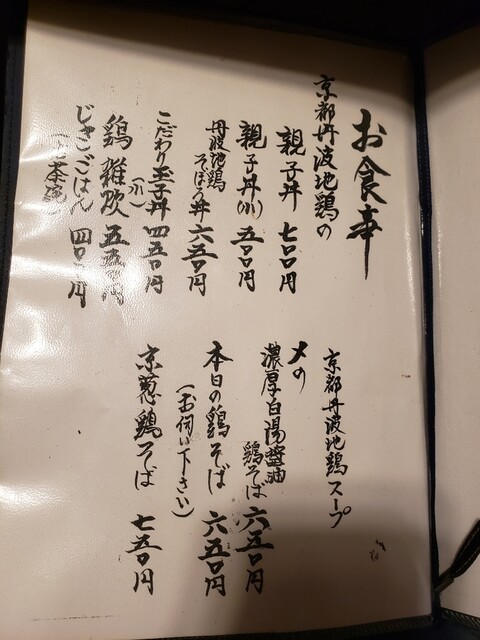 お食事
京都丹波地鶏の
親子丼 七〇〇円
親子丼(小) 五〇〇円
丹波地鶏
そぼろ丼 六五〇円
こだわり玉子丼 四五〇円
(小)
鶏雑炊 五五〇円
じゃこごはん 四〇〇円
京都丹波地鶏スープ
〆の
濃厚白湯醤油
鶏そば 六五〇円
本日の鶏そば 六五〇円
(お伺い下さい)
京葱鶏そば 七五〇円